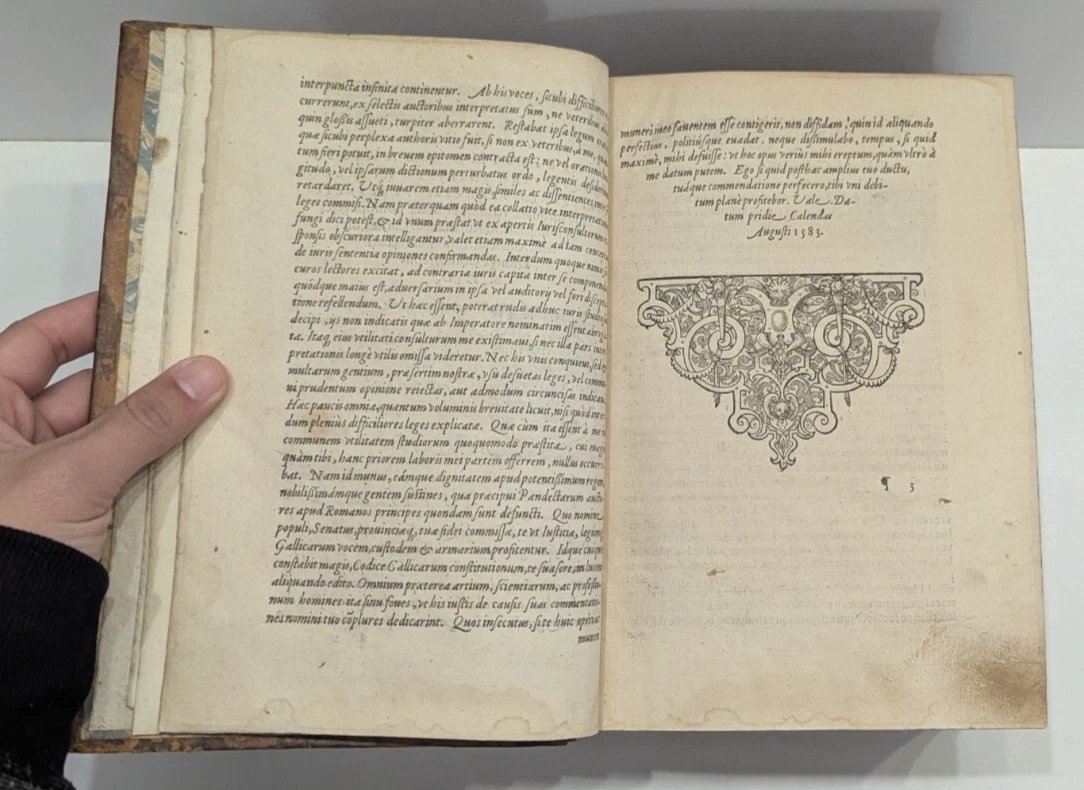 interpuncta infinita continentur. Ab his voces, sicubi difficiliores
currerunt, ex selectis auctoribus interpretatus sum, ne veteribus
quin glossis assueti, turpiter aberrarent. Restabat ipsa legum
quæ sicubi perplexa authoris vitio fuit, si non ex veteribus, à me,
tum fieri potuit, in breuem epitomen contracta est: ne vel orationis
gitudo, vel ipsarum dictionum perturbatus ordo, legentis
retardaret. Utq́; iuuarem etiam magis, similes ac dissentientes inter
leges commisi. Nam præterquam quòd ea collatio vice interpretis
fungi dici potest, & id vnum præstat vt ex apertis Iurisconsultorum
sponsis obscuriora intelligantur, valet etiam maximè ad iam
de iuris sententia opiniones confirmandas. Interdum quoque
curos lectores excitat, ad contraria iuris capita inter se componenda
quódque maius est, aduersarium in ipsa vel auditorij vel fori
tione refellendum. Ut hæc essent, poterat rudis adhuc iuris
decipi, ijs non indicatis quæ ab Imperatore nominatim essent
ta. Itaq; eius vtilitati consulturum me existimaui, si nec illa pars
pretationis longè vtilis omissa videretur. Nec his vnis conquieui, sed
multarum gentium, præsertim nostræ, vsu desuetas leges, vel
ni prudentum opinione reiectas, aut admodum circuncisas
Hæc paucis omnia, quantum voluminis breuitate licuit, nisi quòd
dum plenius difficiliores leges explicatæ. Quæ cùm ita essent à me
communem vtilitatem studiorum quoquomodo præstita, cui
quàm tibi, hanc priorem laboris mei partem offerrem, nullus
bat. Nam id munus, eámque dignitatem apud potentissimum regem,
nobilissimámque gentem sustines, qua præcipui Pandectarum
res apud Romanos principes quondam sunt defuncti. Quo nomine
populi, Senatus, prouinciæq́; tuæ fidei commissæ, te vt Iustitiæ, legum
Gallicarum vocem, custodem & armarium profitentur. Idque
constabit magis, Codice Gallicarum constitutionum, te suasore, in lucem
aliquando edito. Omnium præterea artium, scientiarum, ac
num homines ita sinu foues, vt his iustis de causis suas
nes nomini tuo cōplures dedicarint. Quos insecutus, si te huic
muneri
muneri meo fauentem esse contigerit, non diffidam, quin id aliquando
perfectius, politiúsque euadat. neque dissimulabo, tempus, si quid
maximè, mihi defuisse: vt hoc opus verius mihi ereptum, quàm vltrò à
me datum putem. Ego si quid posthac amplius tuo ductu,
tuáque commendatione perfecero, tibi vni debi-
tum planè profitebor. Vale. Da-
tum pridie Calendas
Augusti 1583.
¶ 3